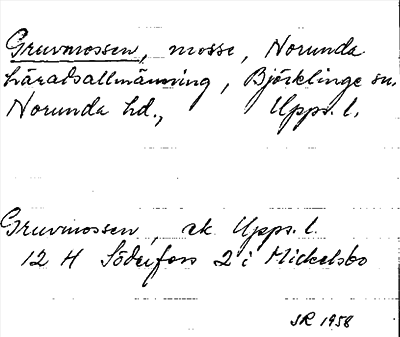 Gruvmossen, mosse, Norunda
häradsallmänning, Björklinge sn.
Norunda hd., Upps. l.
Gruvmossen, ek. Upps. l.
12 H Söderfors 2 i Mickelsbo
SR 1958